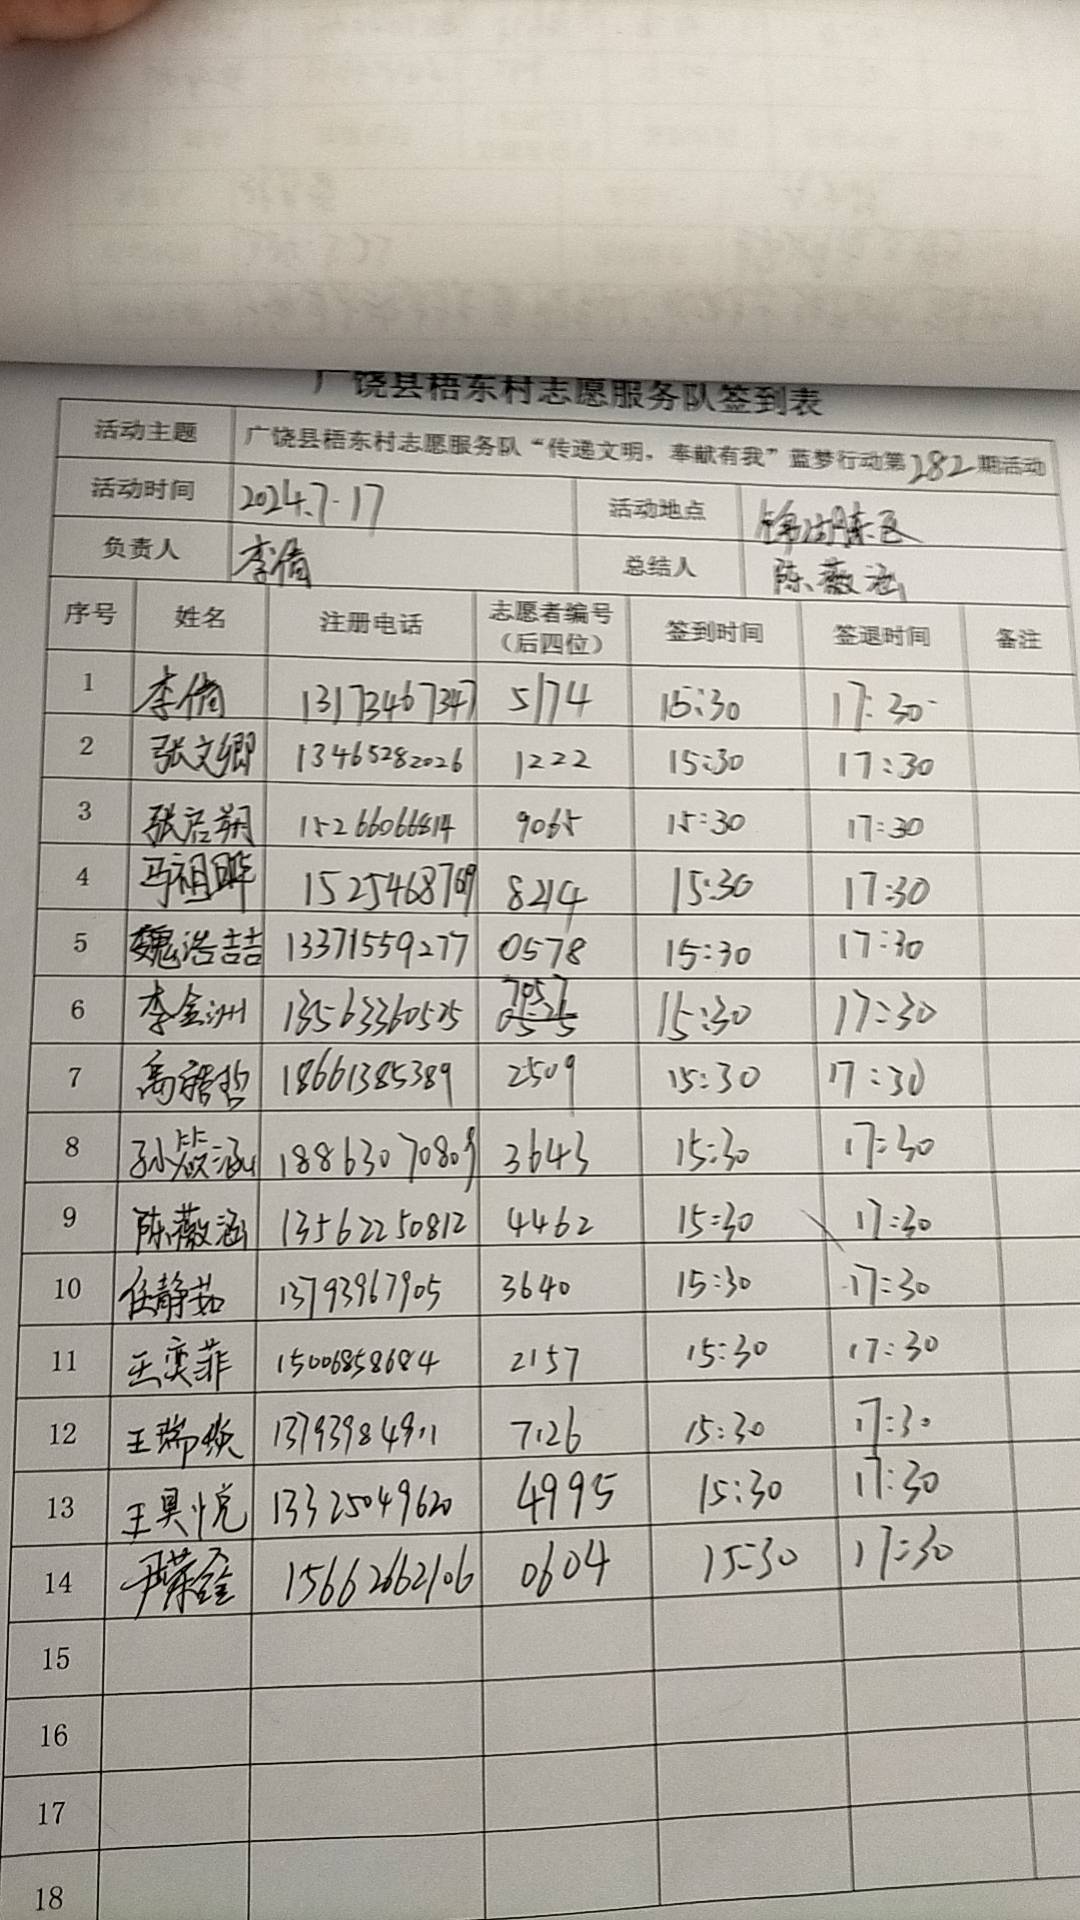 广饶县梧东村志愿服务队签到表
活动主题 广饶县梧东村志愿服务队“传递文明，奉献有我”蓝梦行动第282期活动
活动时间 2024.7.17 活动地点 锦湖东区
负责人 李倩 总结人 陈薇涵
序号 姓名 注册电话 志愿者编号（后四位） 签到时间 签退时间 备注
1 李倩 13173467347 5174 15:30 17:30
2 张文卿 13465282026 1222 15:30 17:30
3 张启朔 15266066814 9065 15:30 17:30
4 马祖晔 15254687 8214 15:30 17:30
5 魏浩喆 13371559277 0578 15:30 17:30
6 李金洲 13563360525 7057 15:30 17:30
7 18661385389 2509 15:30 17:30
8 孙涵 18863070809 3643 15:30 17:30
9 陈薇涵 13562250812 4462 15:30 17:30
10 任静茹 13793967905 3640 15:30 17:30
11 王奕菲 15006858684 2157 15:30 17:30
12 王瑞焕 13793984911 7126 15:30 17:30
13 王昊悦 13325049620 4995 15:30 17:30
14 15662662106 0604 15:30 17:30
15
16
17
18